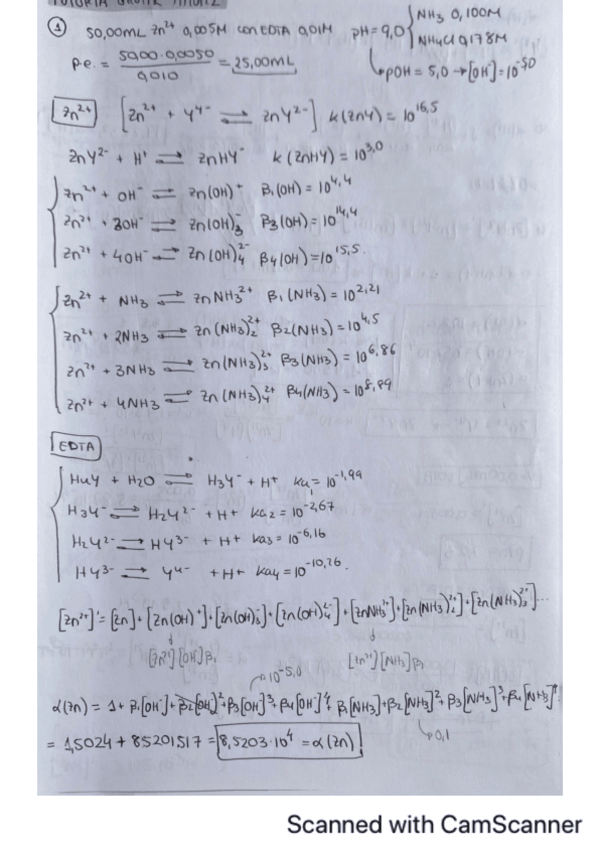 ① 50,00mL Zn²⁺ 0,005M con EDTA 0,01M pH=9,0 { NH3 0,100M
NH4Cl 0,178M
p.e. = 50,00 · 0,0050 / 0,010 = 25,00mL
↳ pOH = 5,0 → [OH⁻] = 10⁻⁵·⁰
Zn²⁺ [Zn²⁺ + Y⁴⁻ ⇌ ZnY²⁻] K(ZnY) = 10^16,5
ZnY²⁻ + H⁺ ⇌ ZnHY⁻ K(ZnHY) = 10^3,0
Zn²⁺ + OH⁻ ⇌ Zn(OH)⁺ β1(OH) = 10^4,4
Zn²⁺ + 3OH⁻ ⇌ Zn(OH)3⁻ β3(OH) = 10^14,4
Zn²⁺ + 4OH⁻ ⇌ Zn(OH)4²⁻ β4(OH) = 10^15,5
Zn²⁺ + NH3 ⇌ ZnNH3²⁺ β1(NH3) = 10^2,21
Zn²⁺ + 2NH3 ⇌ Zn(NH3)2²⁺ β2(NH3) = 10^4,5
Zn²⁺ + 3NH3 ⇌ Zn(NH3)3²⁺ β3(NH3) = 10^6,86
Zn²⁺ + 4NH3 ⇌ Zn(NH3)4²⁺ β4(NH3) = 10^8,89
EDTA
H4Y + H2O ⇌ H3Y⁻ + H⁺ Ka1 = 10^-1,99
H3Y⁻ ⇌ H2Y²⁻ + H⁺ Ka2 = 10^-2,67
H2Y²⁻ ⇌ HY³⁻ + H⁺ Ka3 = 10^-6,16
HY³⁻ ⇌ Y⁴⁻ + H⁺ Ka4 = 10^-10,26
[Zn²⁺]' = [Zn] + [Zn(OH)⁺] + [Zn(OH)3⁻] + [Zn(OH)4²⁻] + [ZnNH3²⁺] + [Zn(NH3)2²⁺] + [Zn(NH3)3²⁺]...
[Zn²⁺][OH⁻]β1 [Zn²⁺][NH3]β1
10⁻⁵·⁰
α(Zn) = 1 + β1[OH⁻] + β2[OH]² + β3[OH]³ + β4[OH⁻]⁴ + β1[NH3] + β2[NH3]² + β3[NH3]³ + β4[NH3]⁴
↳ 0,1
= 1,5024 + 85201517 = 8,5203·10⁴ = α(Zn)
Scanned with CamScanner